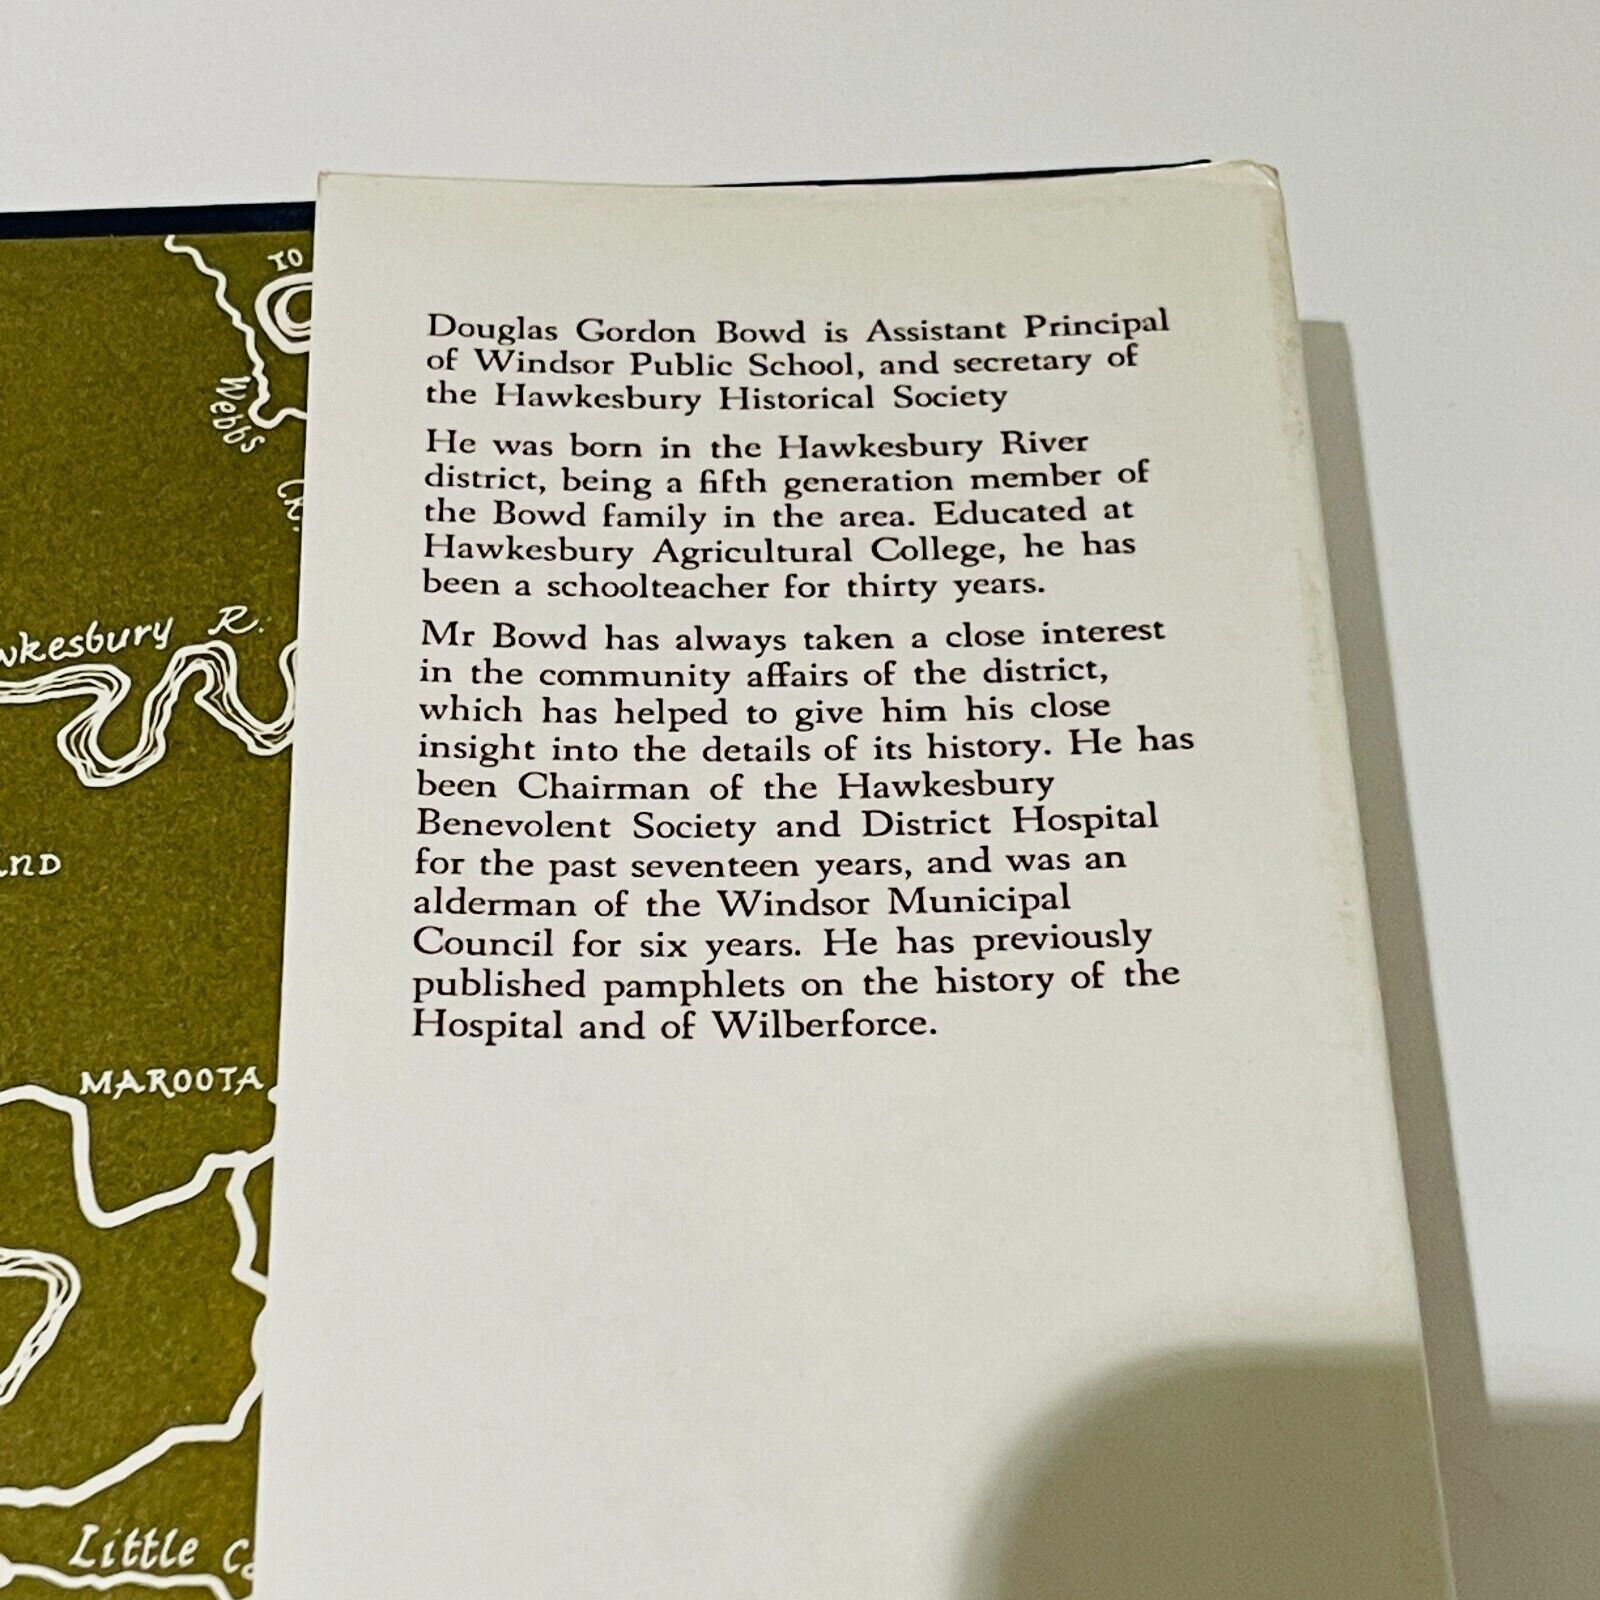 TO
Webbs
CK.
Hawkesbury R.
MAROOTA
Little
Douglas Gordon Bowd is Assistant Principal
of Windsor Public School, and secretary of
the Hawkesbury Historical Society
He was born in the Hawkesbury River
district, being a fifth generation member of
the Bowd family in the area. Educated at
Hawkesbury Agricultural College, he has
been a schoolteacher for thirty years.
Mr Bowd has always taken a close interest
in the community affairs of the district,
which has helped to give him his close
insight into the details of its history. He has
been Chairman of the Hawkesbury
Benevolent Society and District Hospital
for the past seventeen years, and was an
alderman of the Windsor Municipal
Council for six years. He has previously
published pamphlets on the history of the
Hospital and of Wilberforce.